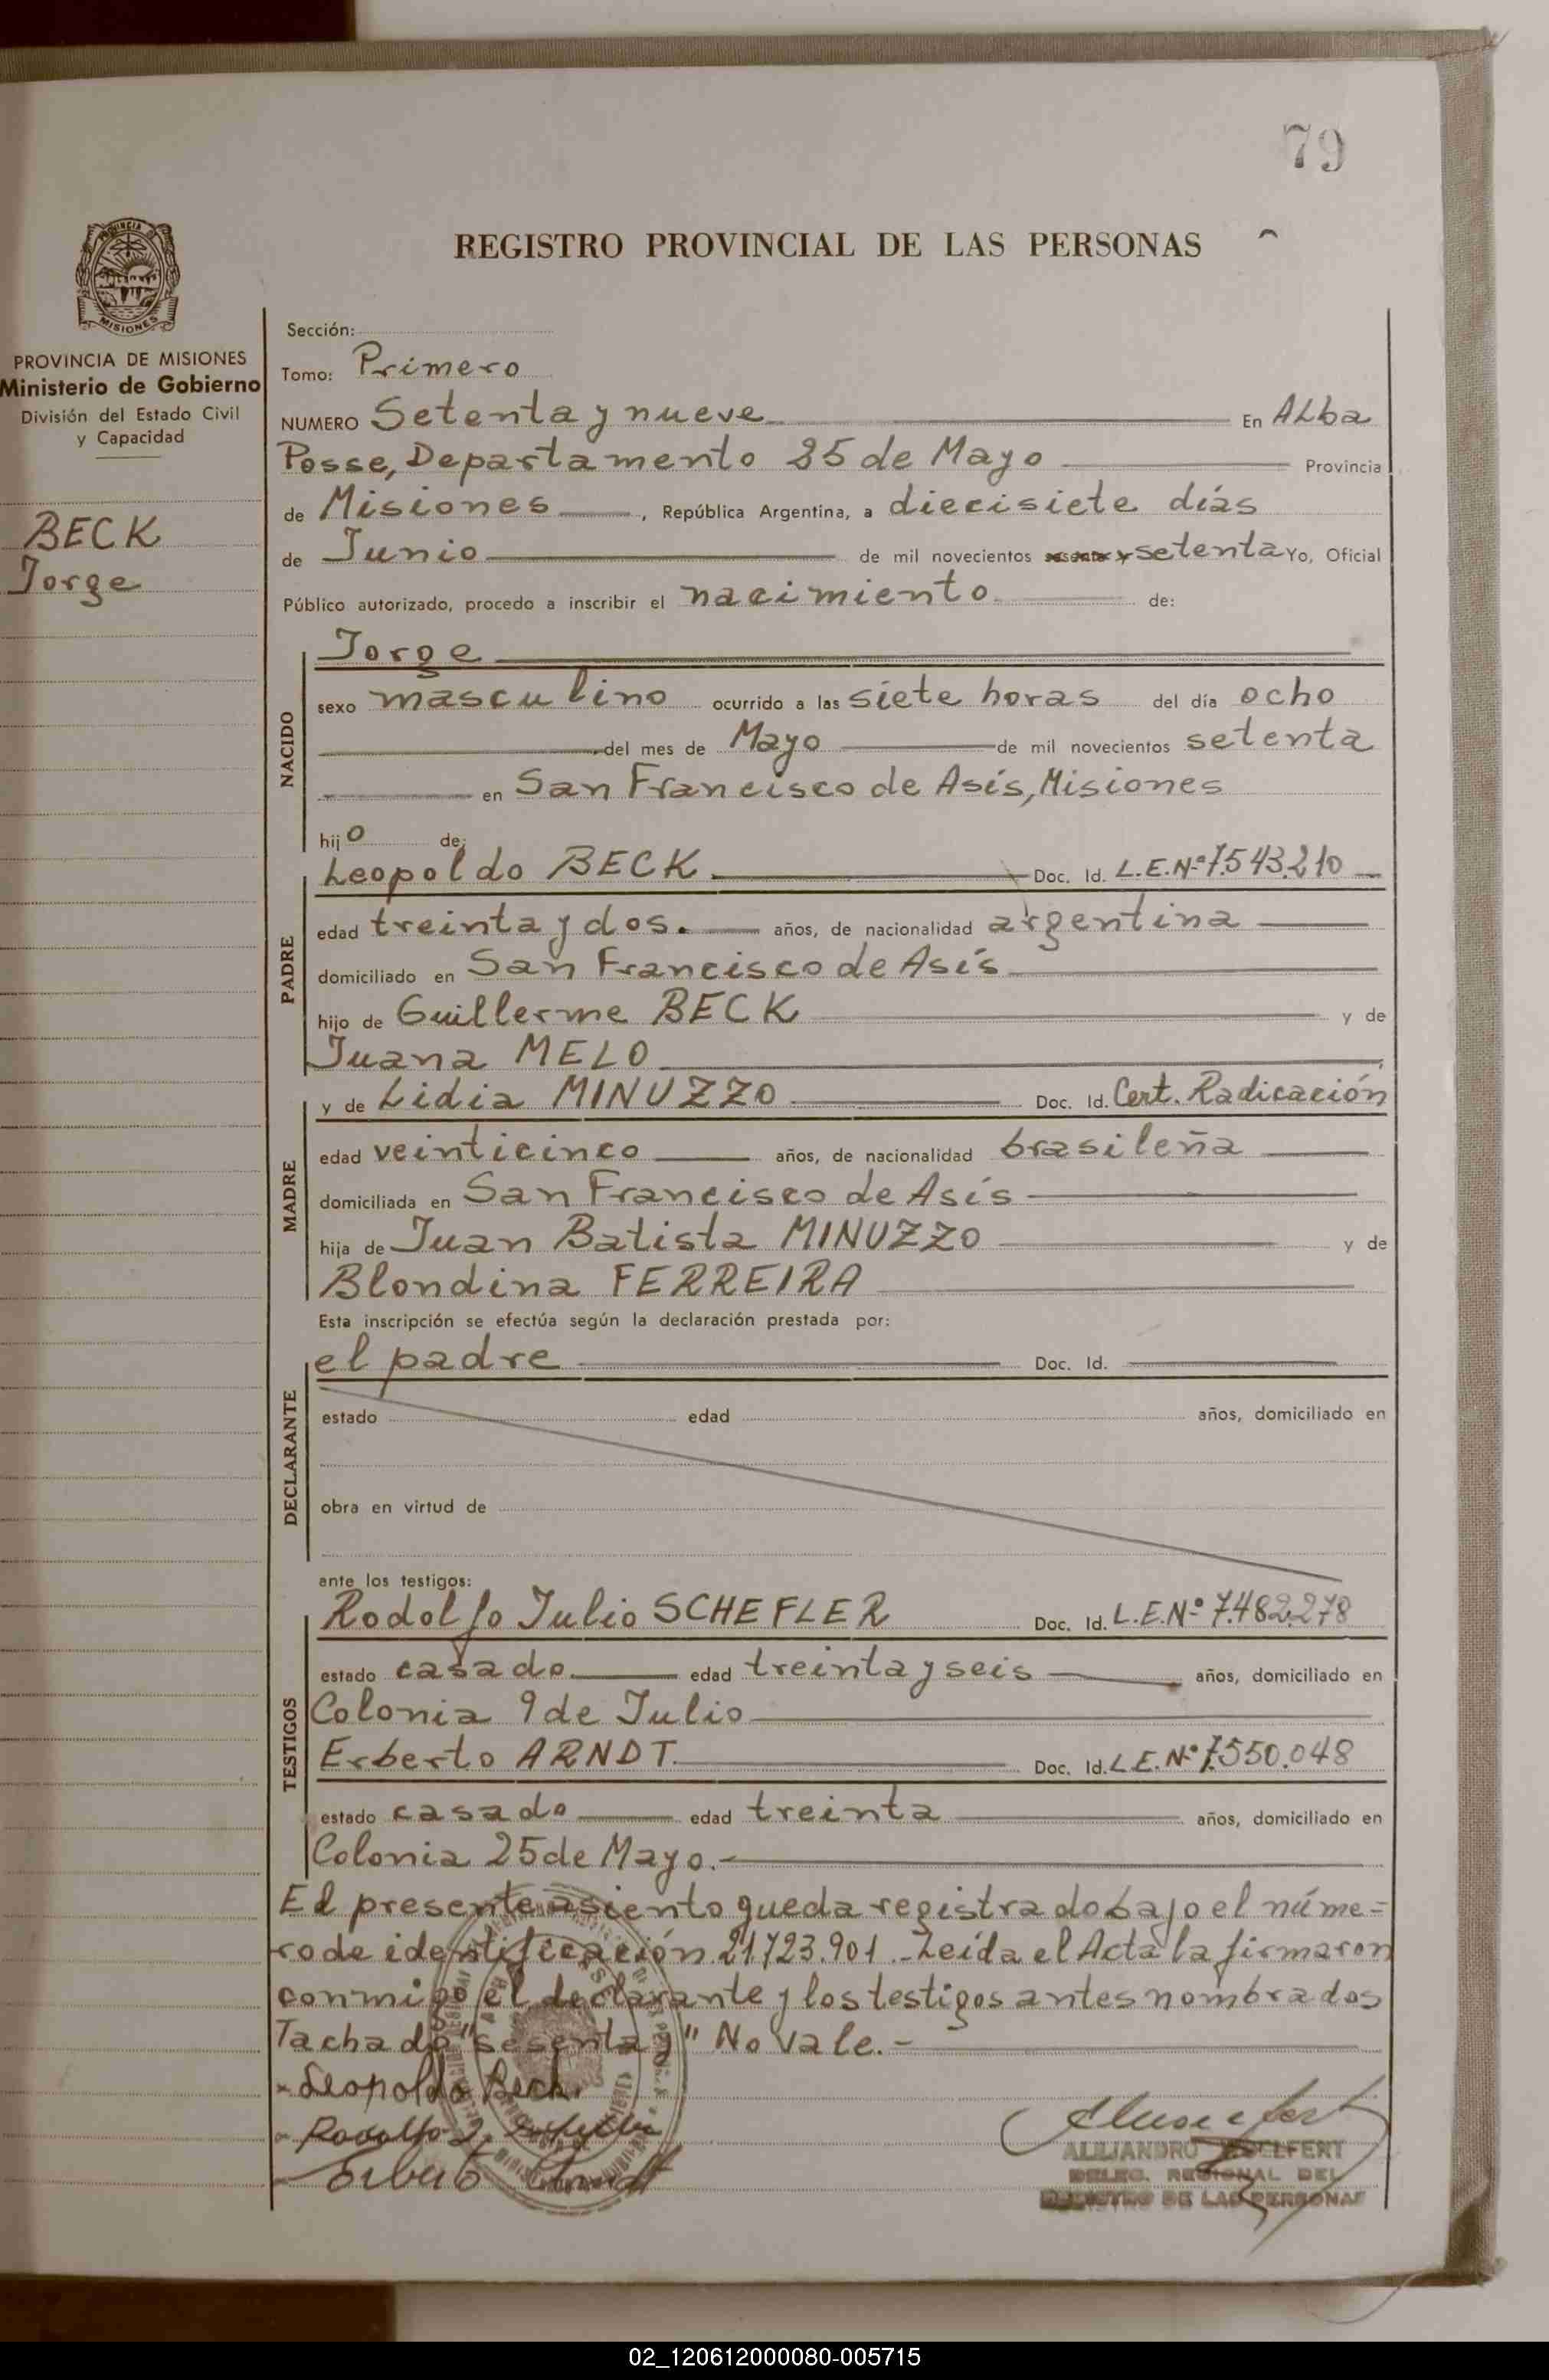 79
REGISTRO PROVINCIAL DE LAS PERSONAS
MISIONES
PROVINCIA DE MISIONES
Ministerio de Gobierno
División del Estado Civil
y Capacidad
BECK
Jorge
Sección:
Tomo: Primero
NUMERO Setenta y nueve En Alba
Posse, Departamento 25 de Mayo Provincia
de Misiones, República Argentina, a diecisiete días
de Junio de mil novecientos sesenta y setenta Yo, Oficial
Público autorizado, procedo a inscribir el nacimiento de:
NACIDO
Jorge
sexo masculino ocurrido a las siete horas del día ocho
del mes de Mayo de mil novecientos setenta
en San Francisco de Asís, Misiones
hijo de:
PADRE
Leopoldo BECK Doc. Id. L.E.Nº 7.543.210
edad treinta y dos. años, de nacionalidad argentina
domiciliado en San Francisco de Asís
hijo de Guillerme BECK y de
Juana MELO
MADRE
y de Lidia MINUZZO Doc. Id. Cert. Radicación
edad veinticinco años, de nacionalidad brasileña
domiciliada en San Francisco de Asís
hija de Juan Batista MINUZZO y de
Blondina FERREIRA
Esta inscripción se efectúa según la declaración prestada por:
DECLARANTE
el padre Doc. Id.
estado edad años, domiciliado en
obra en virtud de
ante los testigos:
TESTIGOS
Rodolfo Julio SCHEFLER Doc. Id. L.E.Nº 7.482.278
estado casado edad treinta y seis años, domiciliado en
Colonia 9 de Julio
Erberto ARNDT. Doc. Id. L.E.Nº 7.550.048
estado casado edad treinta años, domiciliado en
Colonia 25 de Mayo.-
El presente asiento queda registrado bajo el núme=
ro de identificación 21.723.901.- Leída el Acta la firmaron
conmigo el declarante y los testigos antes nombrados
Tachado "sesenta y" No Vale.-
Leopoldo Beck
Rodolfo J.
Erberto Arndt
ALEJANDRO
DELEG. REGIONAL DEL
REGISTRO DE LAS PERSONAS
02_120612000080-005715